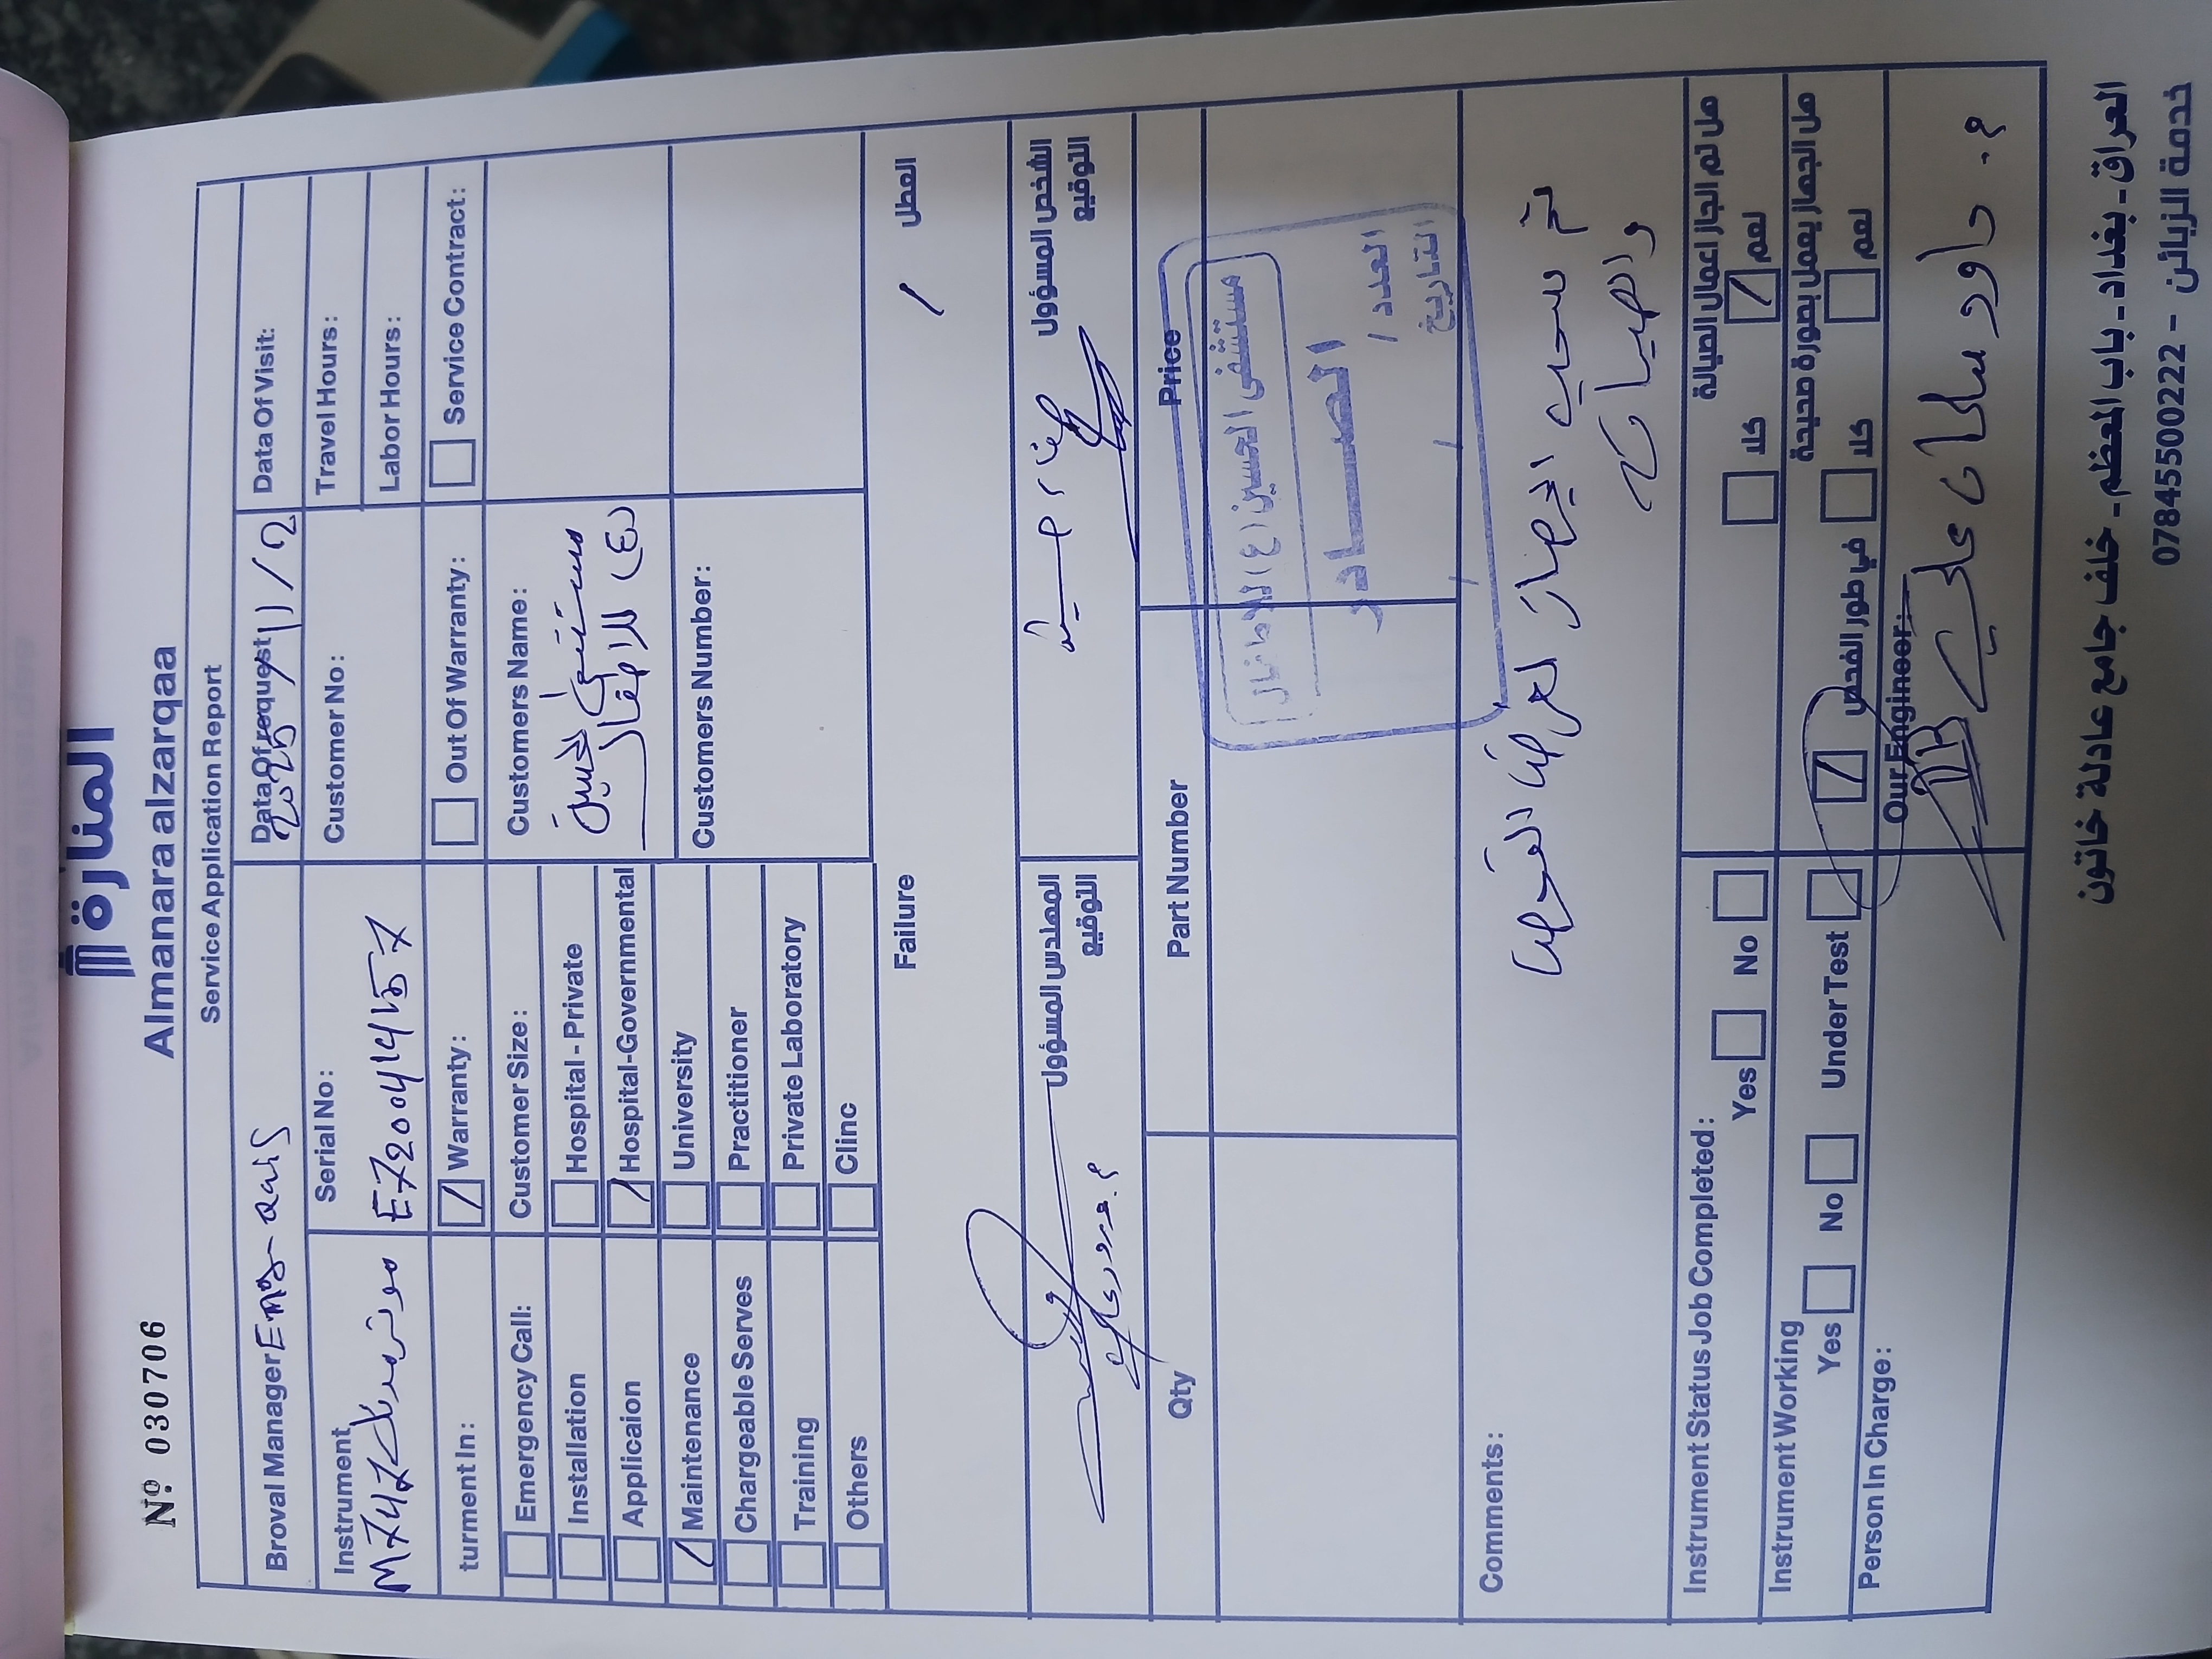 المنارة
Nº 030706
Almanara alzarqaa
Service Application Report
Broval Manager
Data Of request 2025/11/2
Data Of Visit:
Instrument
Serial No :
Customer No :
Travel Hours :
M747
E7200414157
Labor Hours :
turment In :
Warranty :
Out Of Warranty :
Service Contract :
Emergency Call:
Customer Size :
Customers Name :
Installation
Hospital - Private
مستشفى الحسين
Applicaion
Hospital-Governmental
(ع) للاطفال
Maintenance
University
Customers Number :
Chargeable Serves
Practitioner
Training
Private Laboratory
Others
Clinc
Failure
العطل
المهندس المسؤول
الشخص المسؤول
التوقيع
التوقيع
Qty
Part Number
Price
مستشفى الحسين (ع) للاطفال
الصادر
العدد /
التاريخ / /
Comments :
تم سحب الجهاز لغرض الفحص
والصيانة
Instrument Status Job Completed :
هل تم انجاز اعمال الصيانة
Yes
No
كلا
نعم
Instrument Working
هل الجهاز يعمل بصورة صحيحة
Yes
No
Under Test
في طور الفحص
كلا
نعم
Person In Charge :
Our Engineer :
داود سلمان علي
العراق - بغداد - باب المعظم - خلف جامع عادلة خاتون
خدمة الزبائن - 07845500222